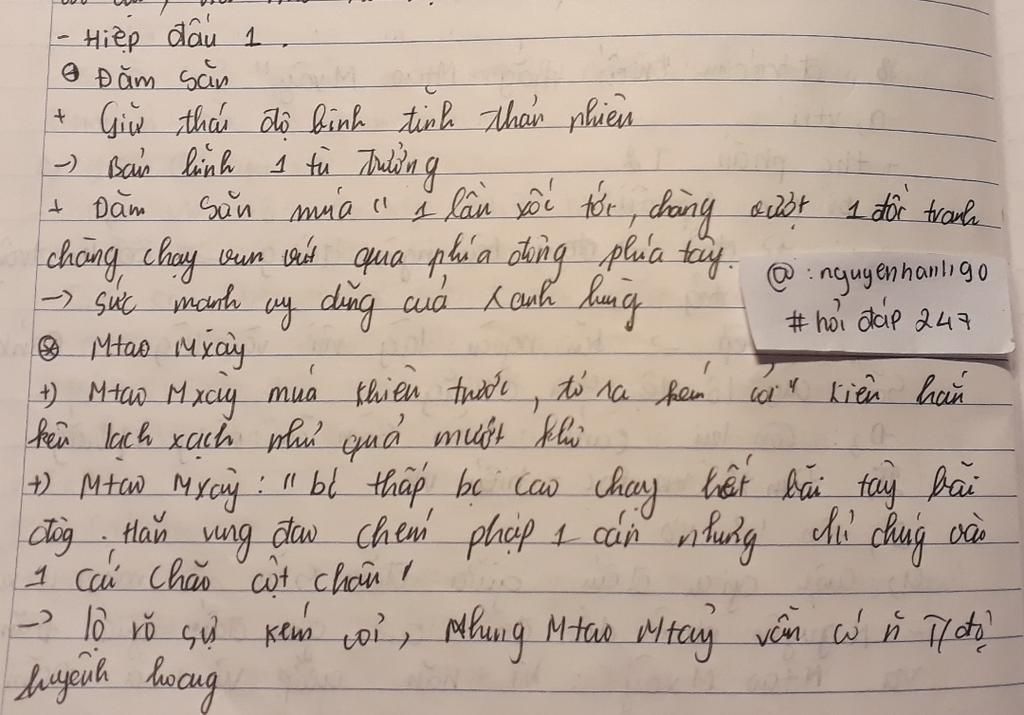 - Hiệp đấu 1.
Đăm Săn
+ Giữ thái độ bình tĩnh thản nhiên
-> Bản lĩnh 1 tù trưởng
+ Đăm Săn múa " 1 lần xốc tới, chàng vượt 1 đồi tranh
chàng chạy vun vút qua phía đông phía tây.
-> sức mạnh uy dũng của
@ : nguyenhanh190
# hỏi đáp 247
Mtao Mxây
+) Mtao Mxây múa khiên trước, tỏ ra kém cỏi " Kiên hắn
kên lạch xạch như quả mướt khô
+) Mtao Mxây : " bc thấp bc cao chạy hết bãi tây bãi
đôg. Hắn vung đao chém phập 1 cái nhưng chỉ chúg vào
1 cái chão cột chân "
-> lộ rõ sự kém cỏi, Nhưng Mtao Mtây vẫn có n~ T/độ
huyênh hoang